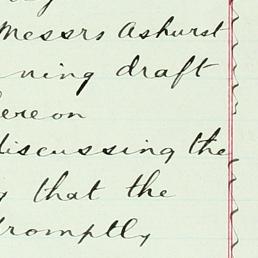 Messrs Ashurst
ning draft
ereon
discussing the
that the
promptly